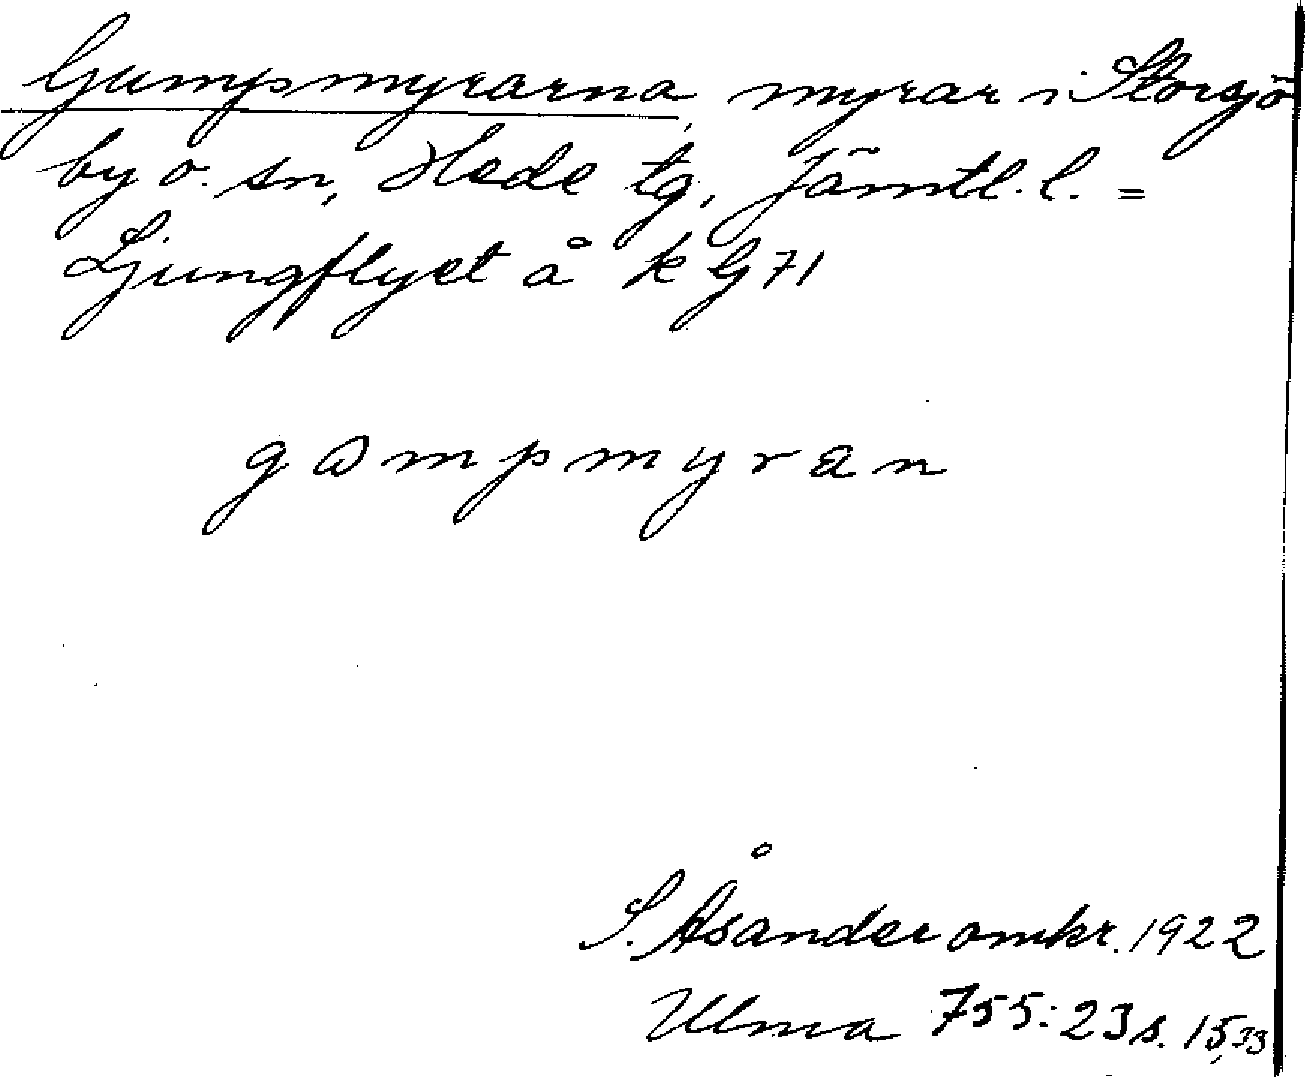 Gumpmyrarna, myrar i Storsjö
by o. sn, Hede tg, Jämtl. l. =
Ljungflyet å k G 71
gɷmpmyran
S. Åsander omkr. 1922
Ulma 755:23 s. 15,33